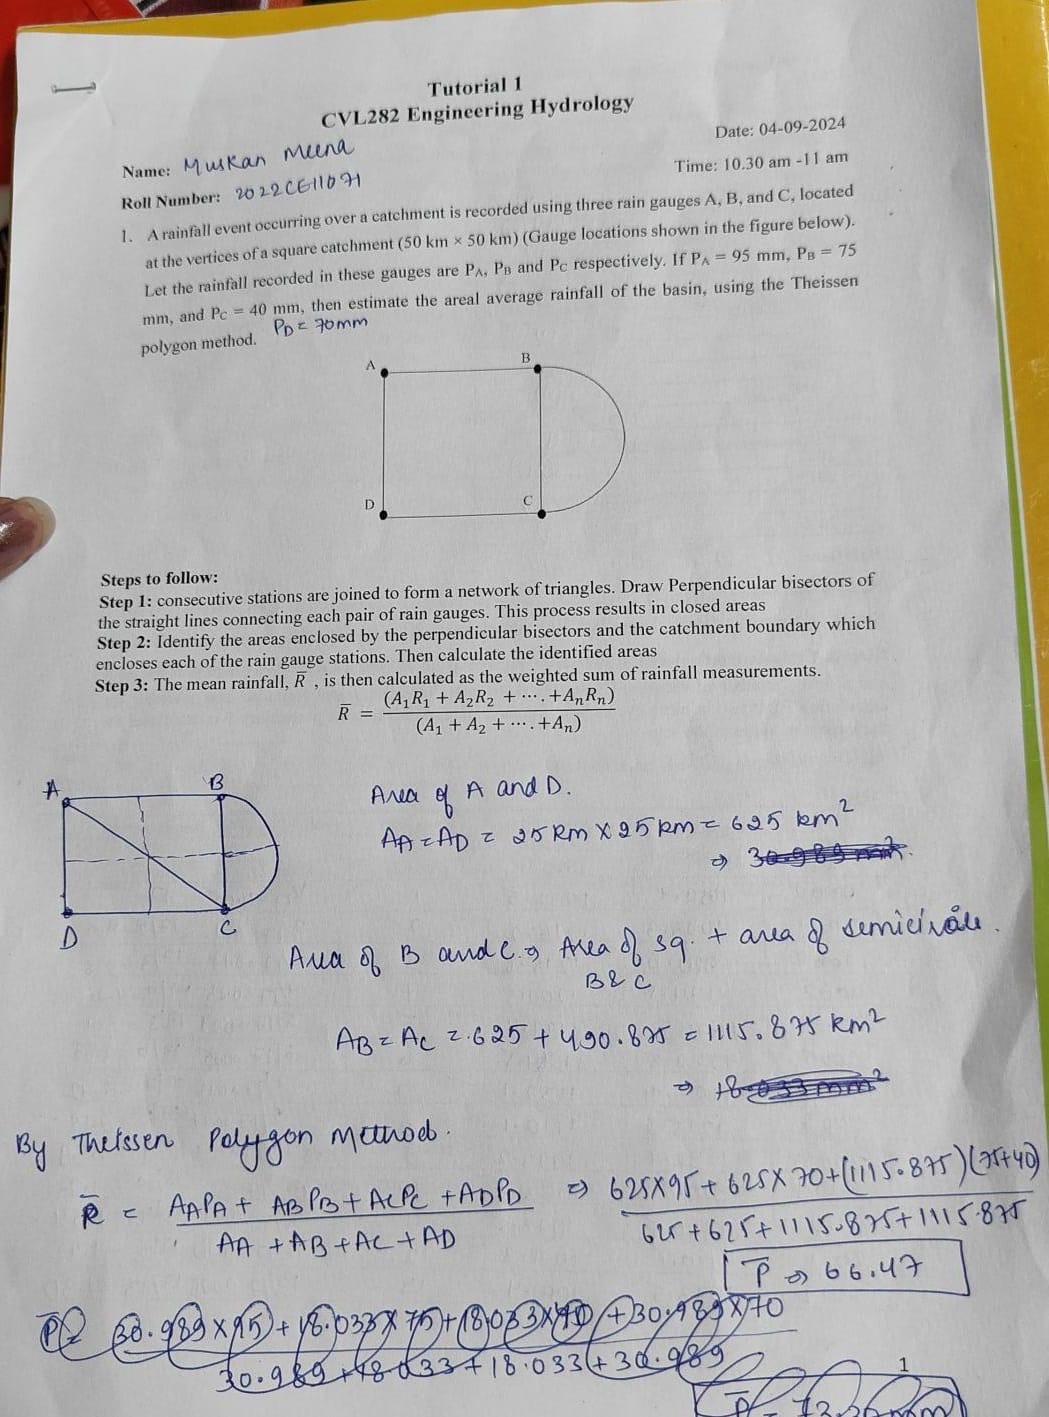 Tutorial 1
CVL282 Engineering Hydrology
Date: 04-09-2024
Name: Muskan Meena
Time: 10.30 am -11 am
Roll Number: 2022CE11071
1. A rainfall event occurring over a catchment is recorded using three rain gauges A, B, and C, located
at the vertices of a square catchment (50 km × 50 km) (Gauge locations shown in the figure below).
Let the rainfall recorded in these gauges are PA, PB and PC respectively. If PA = 95 mm, PB = 75
mm, and PC = 40 mm, then estimate the areal average rainfall of the basin, using the Theissen
polygon method. PD = 70mm
A B
D C
Steps to follow:
Step 1: consecutive stations are joined to form a network of triangles. Draw Perpendicular bisectors of
the straight lines connecting each pair of rain gauges. This process results in closed areas
Step 2: Identify the areas enclosed by the perpendicular bisectors and the catchment boundary which
encloses each of the rain gauge stations. Then calculate the identified areas
Step 3: The mean rainfall, R̅ , is then calculated as the weighted sum of rainfall measurements.
R̅ = (A₁R₁ + A₂R₂ + ⋯.+AₙRₙ) / (A₁ + A₂ + ⋯.+Aₙ)
A B
D C
Area of A and D.
AA = AD = 25 Km × 25 km = 625 km²
⇒
Area of B and C ⇒ Area of sq. + area of semicircle.
B & C
AB = AC = 625 + 490.875 = 1115.875 km²
⇒ 18.033 mm²
By Theissen Polygon Method.
R̅ = AAPA + ABPB + ACPC + ADPD / AA + AB + AC + AD
⇒ 625×95 + 625×70 + (1115.875)(75+40) / 625 + 625 + 1115.875 + 1115.875
P̅ ⇒ 66.47
P̅ = 30.989×95 + 18.033×75 + 18.033×40 + 30.989×70
30.989 + 18.033 + 18.033 + 30.989
1